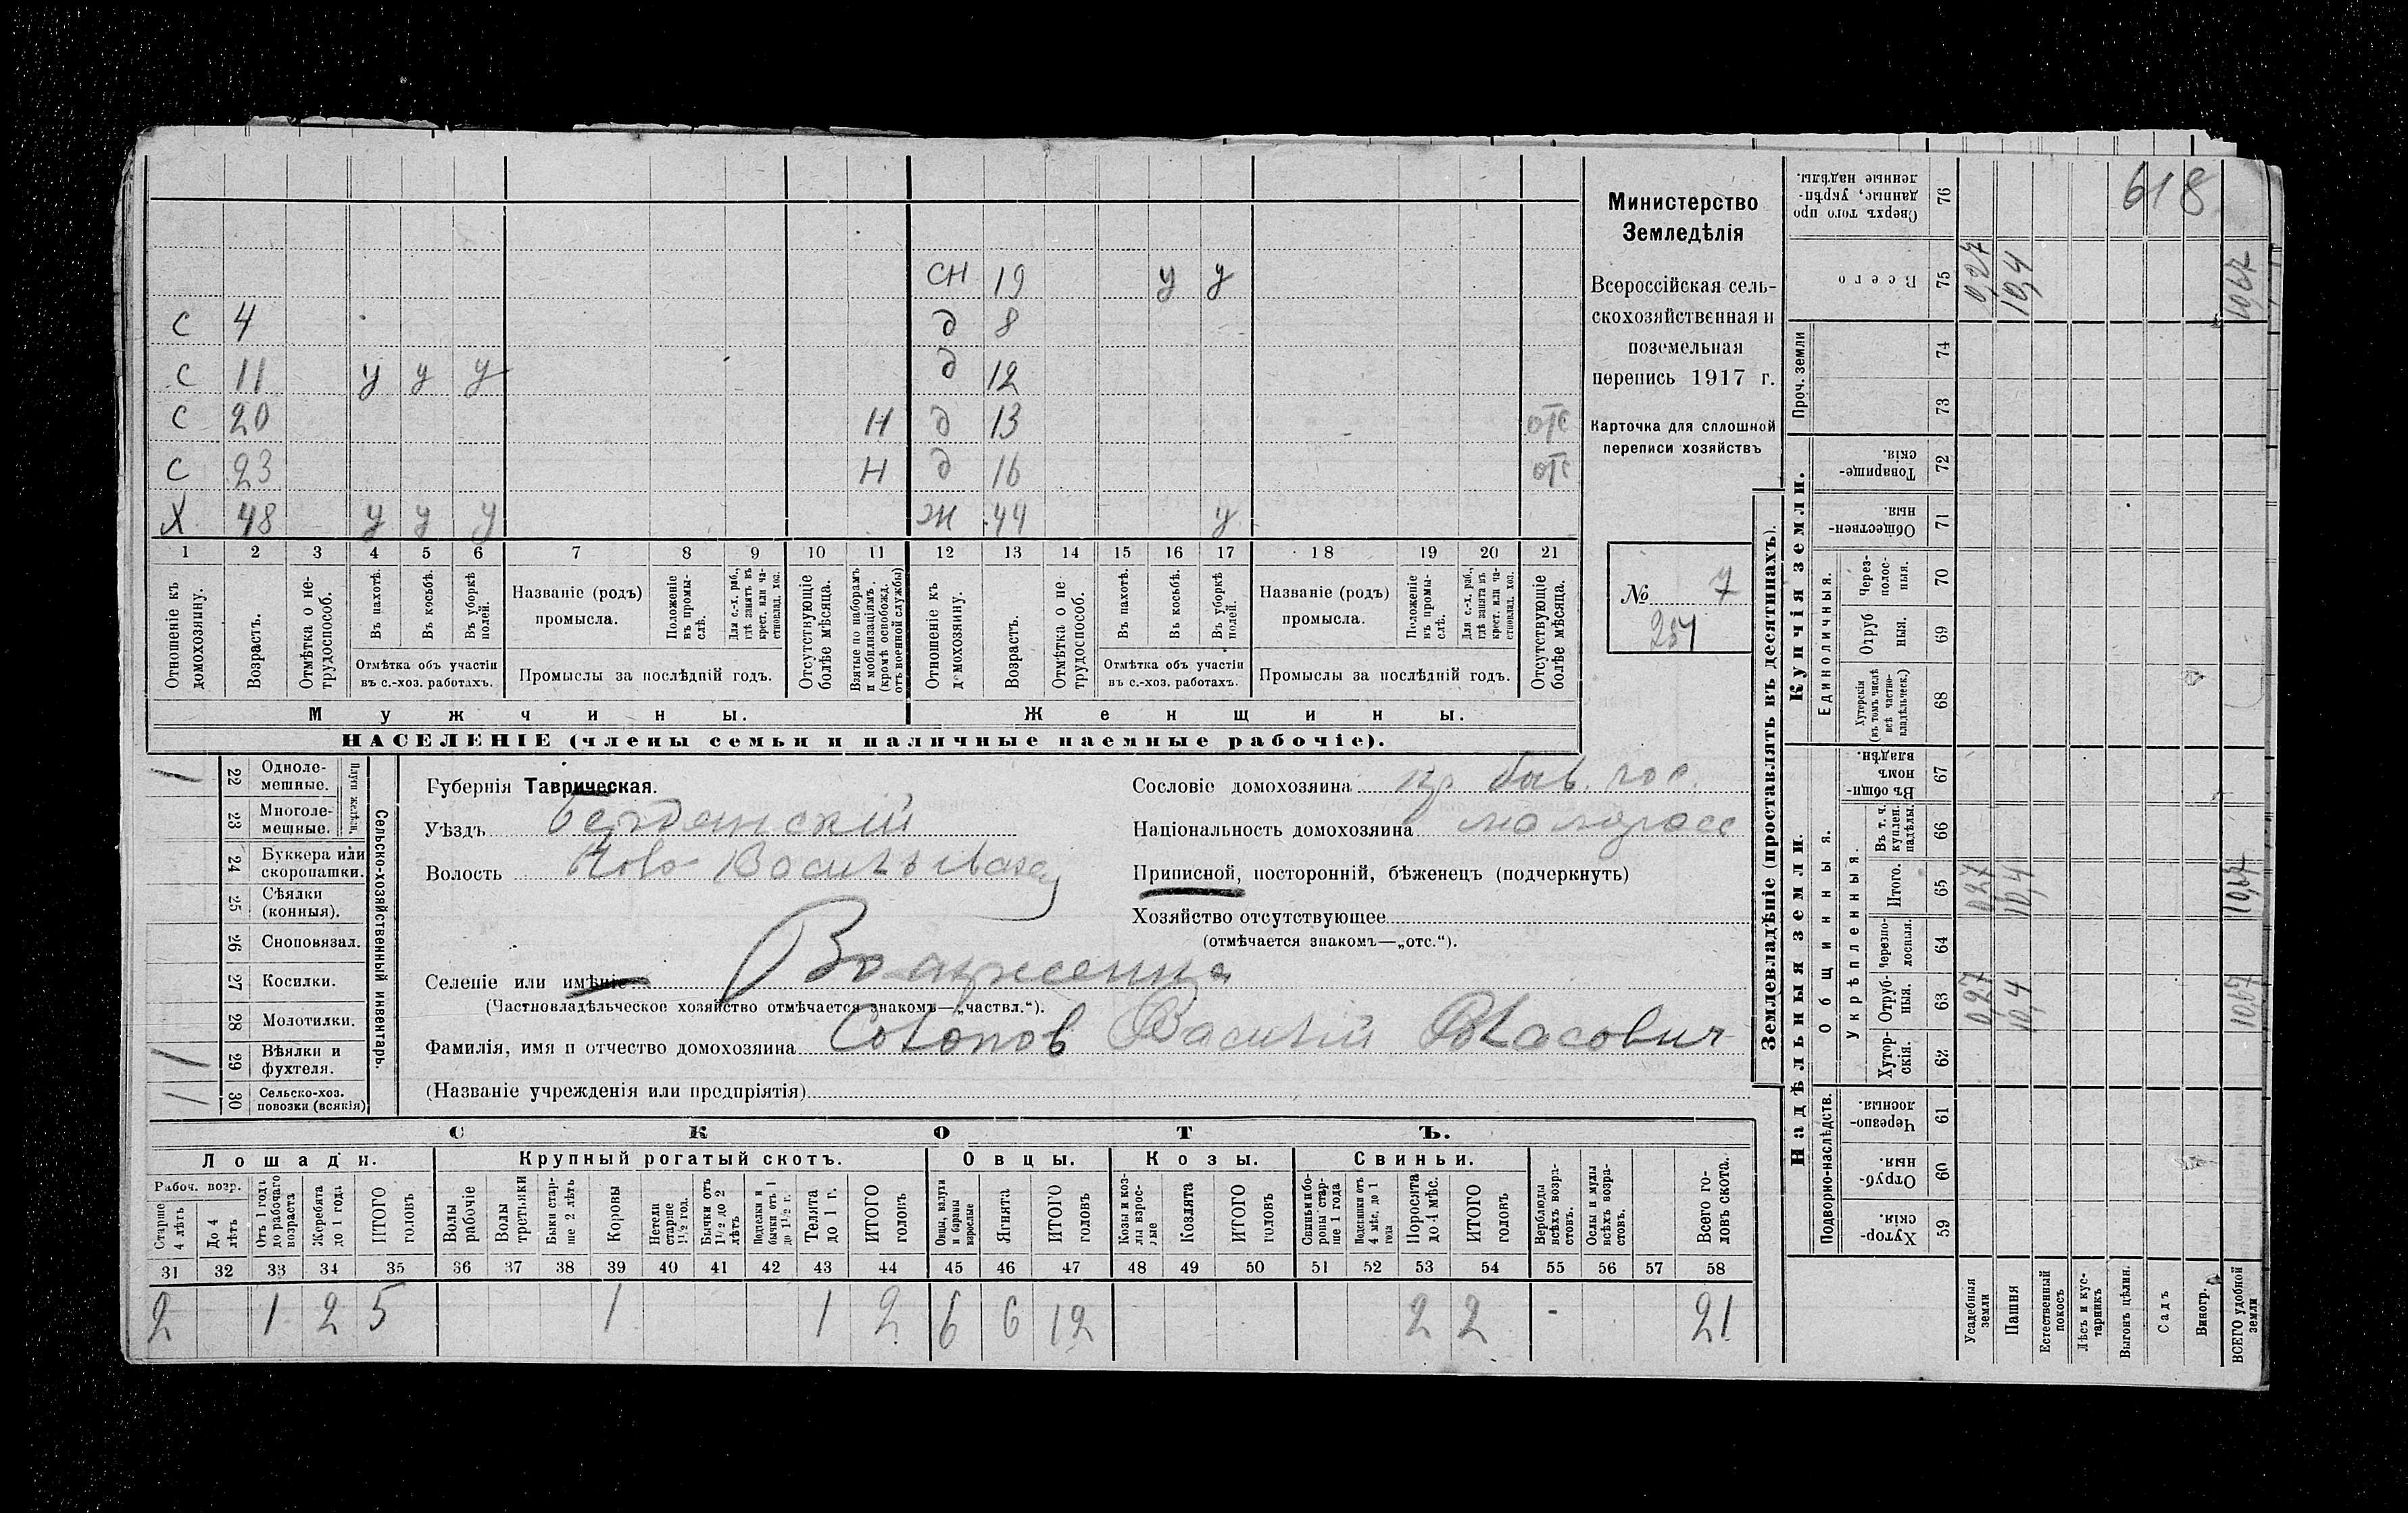 618
СН 19 у у
С 4 д 8
С 11 у у у д 12
С 20 Н д 13 отс
С 23 Н д 16 отс
Х 48 у у у Ж 44 у
1 2 3 4 5 6 7 8 9 10 11 12 13 14 15 16 17 18 19 20 21
Отношеніе къ домохозяину.
Возрастъ.
Отмѣтка о нетрудоспособ.
Въ пахотѣ.
Въ косьбѣ.
Въ уборкѣ полей.
Отмѣтка объ участіи
въ с.-хоз. работахъ.
Названіе (родъ)
промысла.
Положеніе въ промыслѣ.
Для с.-х. раб., гдѣ занятъ въ крест. или частновлад. хоз.
Промыслы за послѣдній годъ.
Отсутствующіе болѣе мѣсяца.
Взятые по наборамъ и мобилизаціямъ. (кромѣ освобожд. отъ военной службы)
Отношеніе къ домохозяину.
Возрастъ.
Отмѣтка о нетрудоспособ.
Въ пахотѣ.
Въ косьбѣ.
Въ уборкѣ полей.
Отмѣтка объ участіи
въ с.-хоз. работахъ.
Названіе (родъ)
промысла.
Положеніе въ промыслѣ.
Для с.-х. раб., гдѣ занята въ крест. или частновлад. хоз.
Промыслы за послѣдній годъ.
Отсутствующіе болѣе мѣсяца.
Мужчины. Женщины.
НАСЕЛЕНІЕ (члены семьи и наличные наемные рабочіе).
Министерство
Земледѣлія
Всероссійская сель-
скохозяйственная и
поземельная
перепись 1917 г.
Карточка для сплошной
переписи хозяйствъ
№ 7
254
Сельско-хозяйственный инвентарь.
Плуги желѣзн.
22 Однолемешные. /
23 Многолемешные.
24 Буккера или скоропашки.
25 Сѣялки (конныя).
26 Сноповязал.
27 Косилки.
28 Молотилки.
29 Вѣялки и фухтеля. /
30 Сельско-хоз. повозки (всякія) /
Губернія Таврическая.
Уѣздъ Бердянскій
Волость Ново Васильевская
Селеніе или имѣніе Воскресенка
(Частновладѣльческое хозяйство отмѣчается знакомъ—„частвл.“).
Фамилія, имя и отчество домохозяина Солопов Василій Власович
(Названіе учрежденія или предпріятія)
Сословіе домохозяина кр. быв. гос.
Національность домохозяина малоросс
Приписной, посторонній, бѣженецъ (подчеркнуть)
Хозяйство отсутствующее
(отмѣчается знакомъ—„отс.“).
СКОТЪ.
Лошади. Крупный рогатый скотъ. Овцы. Козы. Свиньи.
Рабоч. возр.
Старше 4 лѣтъ
До 4 лѣтъ
Отъ 1 года до рабочаго возраста
Жеребята до 1 года
ИТОГО головъ
Волы рабочіе
Волы третьяки
Быки старше 2 лѣтъ
Коровы
Нетели старше 1½ год.
Бычки отъ 1½ до 2 лѣтъ
Подтелки и бычки отъ 1 до 1½ г.
Телята до 1 г.
ИТОГО головъ
Овцы, валухи и бараны взрослые
Ягнята
ИТОГО головъ
Козы и козлы взрослые
Козлята
ИТОГО головъ
Свиньи и боровы старше 1 года
Подсвинки отъ 4 мѣс. до 1 года
Поросята до 4 мѣс.
ИТОГО головъ
Верблюды всѣхъ возрастовъ.
Ослы и мулы всѣхъ возрастовъ.
Всего головъ скота.
31 32 33 34 35 36 37 38 39 40 41 42 43 44 45 46 47 48 49 50 51 52 53 54 55 56 57 58
2 1 2 5 1 1 2 6 6 12 2 2 - 21
Землевладѣніе (проставлять въ десятинахъ).
Надѣльныя земли. Купчія земли.
Подворно-наслѣдств. Общинныя. Единоличныя. Проч. земли
Укрѣпленныя.
59 Хуторскія.
60 Отрубныя.
61 Черезполосныя.
62 Хуторскія.
63 Отрубныя. 0,27 10,4 10,67
64 Черезполосныя.
65 Итого. 0,27 10,4 10,67
66 Въ т. ч. куплен. надѣлы.
67 Въ общинномъ владѣн.
68 Хуторскія (въ томъ числѣ всѣ частновладѣльческ.)
69 Отрубныя.
70 Черезполосныя.
71 Общественныя.
72 Товарищескія.
73
74
75 Всего 0,27 10,4 10,67
76 Сверхъ того проданные, укрѣпленные надѣлы.
Усадебныя земли
Пашня
Естественный покосъ
Лѣсъ и кустарникъ
Выгонъ цѣлин.
Садъ
Виногр.
ВСЕГО удобной земли